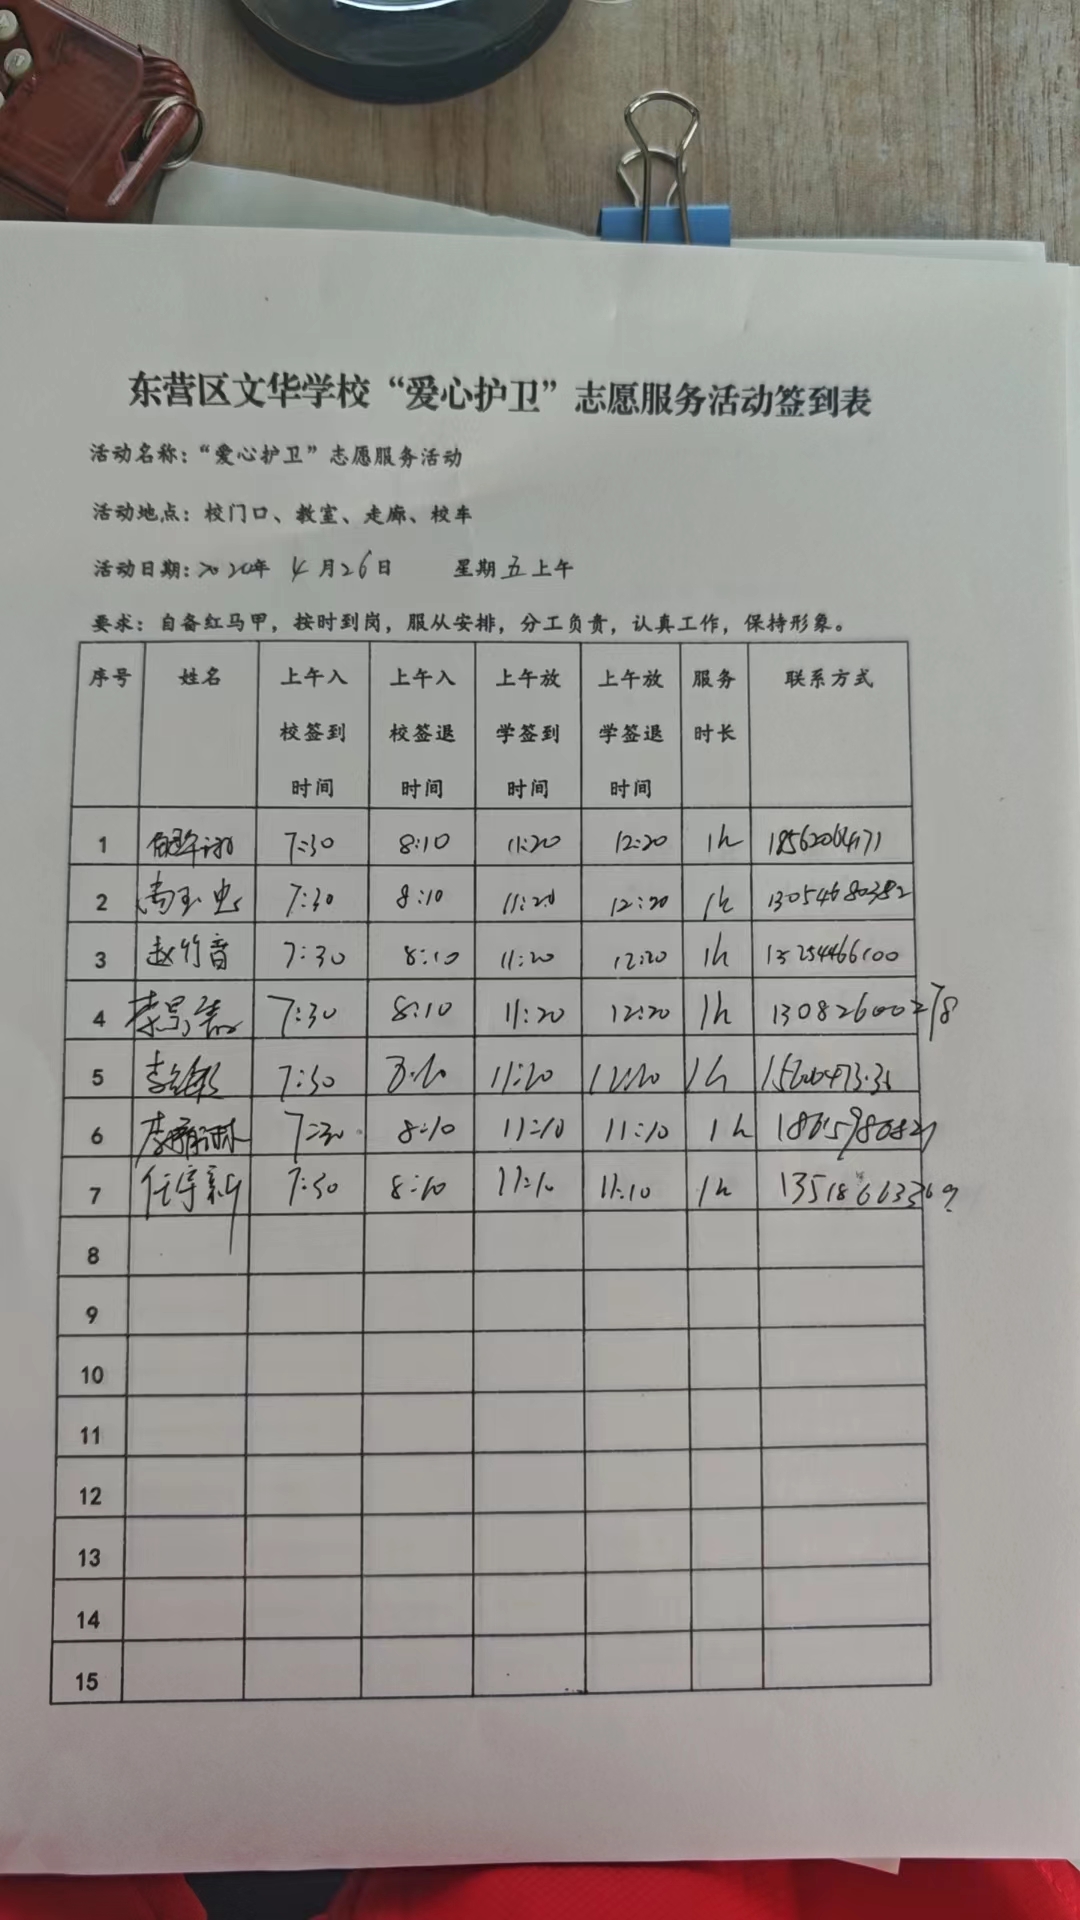 东营区文华学校“爱心护卫”志愿服务活动签到表
活动名称：“爱心护卫”志愿服务活动
活动地点：校门口、教室、走廊、校车
活动日期：2020年 4月26日 星期五上午
要求：自备红马甲，按时到岗，服从安排，分工负责，认真工作，保持形象。
序号 姓名 上午入校签到时间 上午入校签退时间 上午放学签到时间 上午放学签退时间 服务时长 联系方式
1 7:30 8:10 11:20 12:20 1h
2 7:30 8:10 11:20 12:20 1h 13054680382
3 赵竹音 7:30 8:10 11:20 12:20 1h 15254466100
4 李 7:30 8:10 11:20 12:20 1h 13082600278
5 李 7:30 8:10 11:20 12:20 1h
6 李 7:30 8:10 11:10 11:10 1h
7 任宇新 7:30 8:10 11:10 11:10 1h
8
9
10
11
12
13
14
15